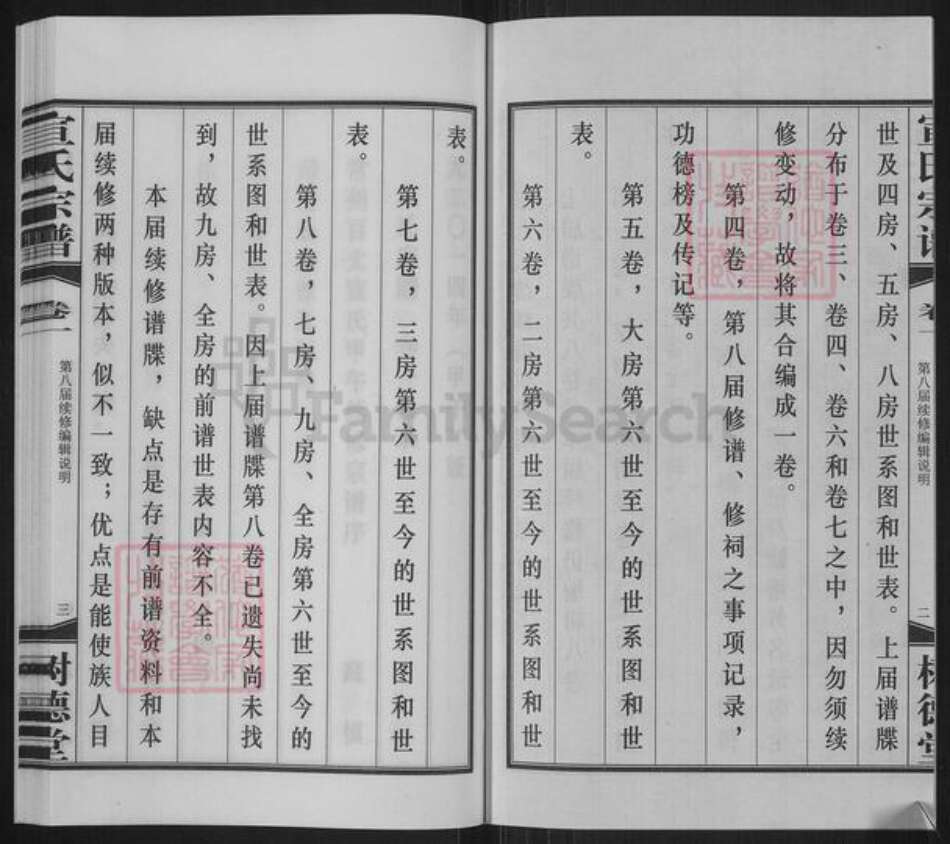 宣氏宗谱
卷一
第八届续修编辑说明
二
树德堂
世及四房、五房、八房世系图和世表。上届谱牒
分布于卷三、卷四、卷六和卷七之中，因勿须续
修变动，故将其合编成一卷。
第四卷，第八届修谱、修祠之事项记录，
功德榜及传记等。
第五卷，大房第六世至今的世系图和世
表。
第六卷，二房第六世至今的世系图和世
表。
第七卷，三房第六世至今的世系图和世
表。
第八卷，七房、九房、全房第六世至今的
世系图和世表。因上届谱牒第八卷已遗失尚未找
到，故九房、全房的前谱世表内容不全。
本届续修谱牒，缺点是存有前谱资料和本
届续修两种版本，似不一致；优点是能使族人目
宣氏宗谱
卷一
第八届续修编辑说明
三
树德堂
FamilySearch